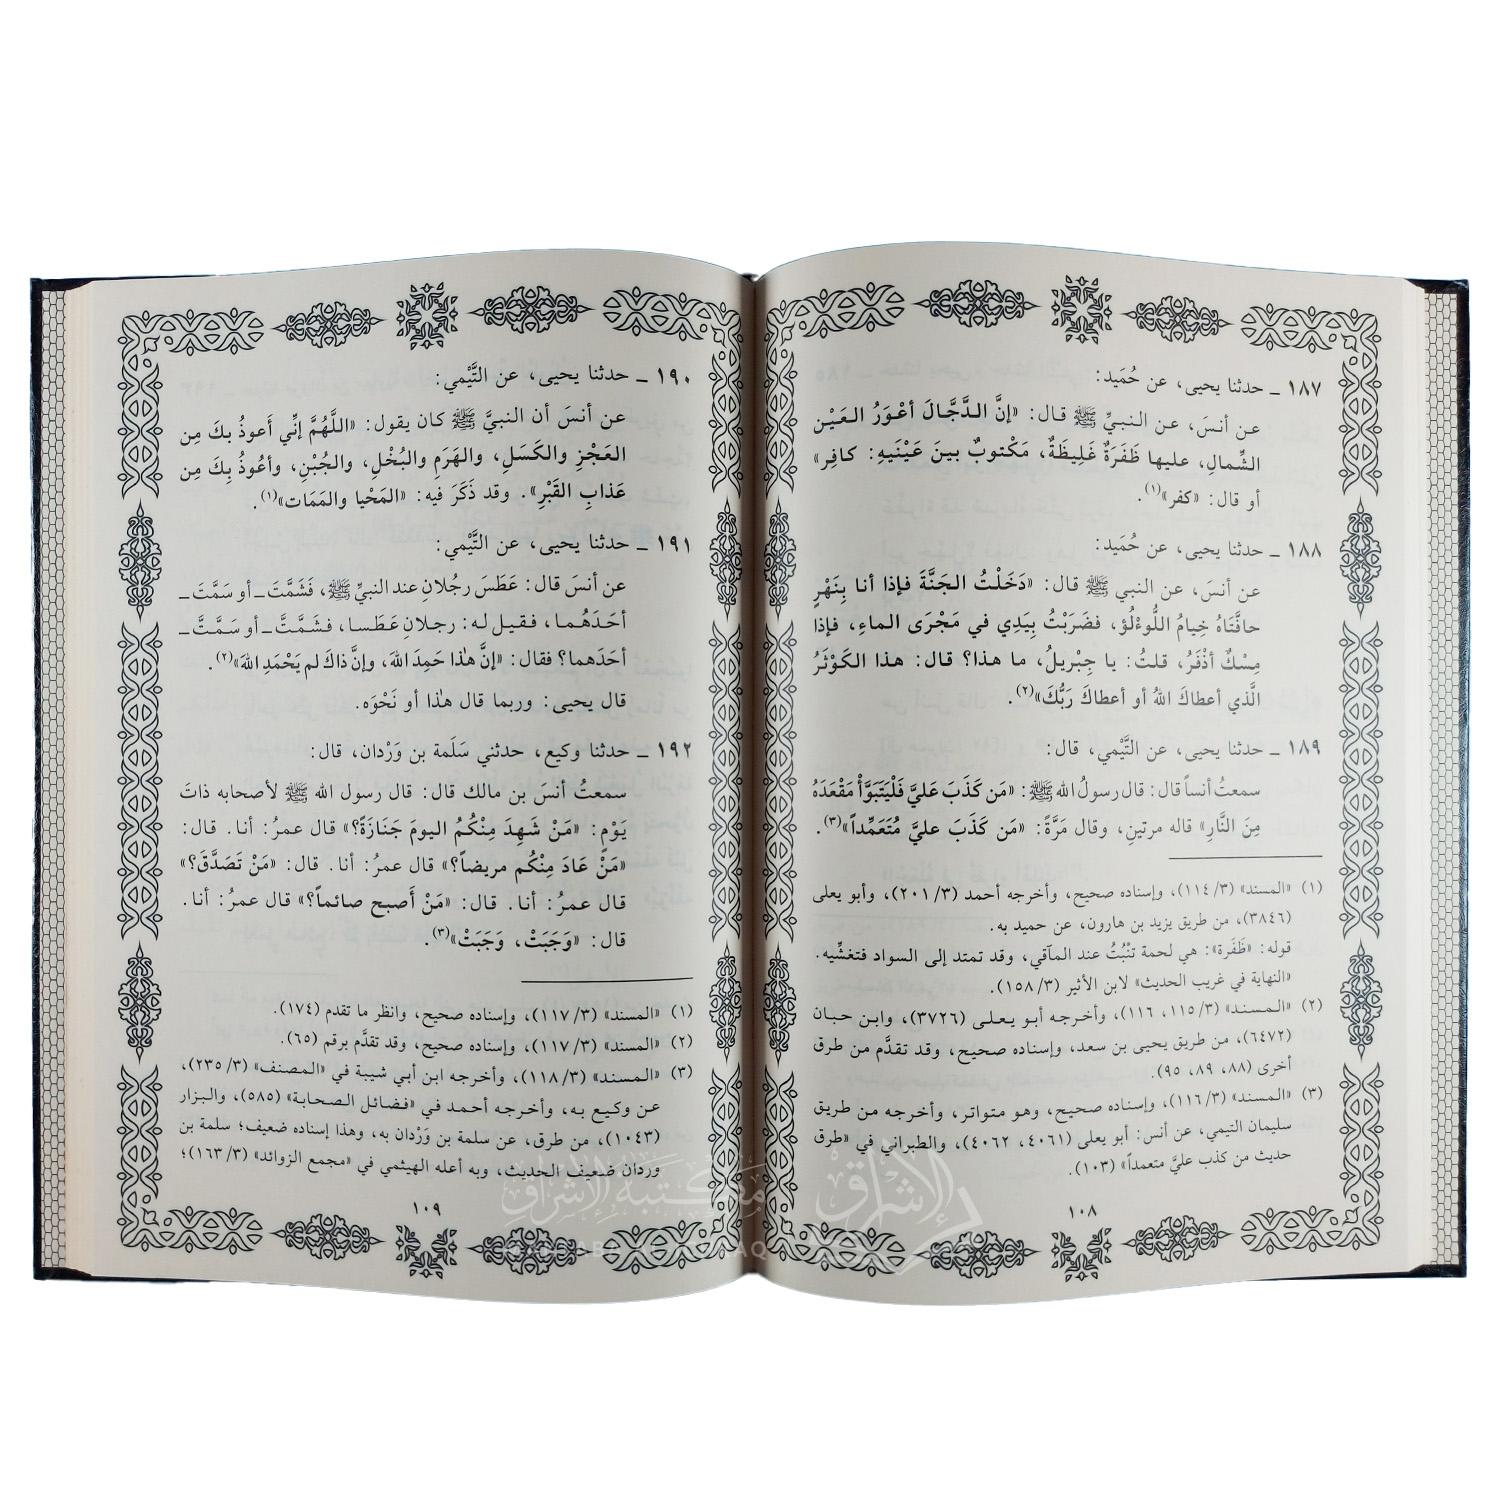 ١٨٧ ـ حدثنا يحيى، عن حُمَيد:
عن أنسَ، عن النبيِّ ﷺ قال: «إنَّ الدَّجَّالَ أعْوَرُ العَيْن
الشِّمالِ، عليها ظَفَرَةٌ غَلِيظَةٌ، مَكْتوبٌ بينَ عَيْنَيهِ: كافِر»
أو قال: «كفر»(١).
١٨٨ ـ حدثنا يحيى، عن حُمَيد:
عن أنسَ، عن النبي ﷺ قال: «دَخَلْتُ الجَنَّةَ فإذا أنا بِنَهْرٍ
حافَّتَاهُ خِيامُ اللُّوءْلُؤ، فضَرَبْتُ بِيَدِي في مَجْرَى الماءِ، فإذا
مِسْكٌ أذْفَرُ، قلتُ: يا جِبْريلُ، ما هذا؟ قال: هذا الكَوْثَرُ
الَّذي أعطاكَ اللهُ أو أعطاكَ رَبُّكَ»(٢).
١٨٩ ـ حدثنا يحيى، عن التَّيْمي، قال:
سمعتُ أنساً قال: قال رسولُ الله ﷺ: «مَن كَذَبَ عليَّ فَلْيَتَبَوَّأْ مَقْعَدَهُ
مِنَ النَّارِ» قاله مرتينِ، وقال مَرَّةً: «مَن كَذَبَ عليَّ مُتَعَمِّداً»(٣).
(١) «المسند» (٣/ ١١٤)، وإسناده صحيح، وأخرجه أحمد (٣/ ٢٠١)، وأبو يعلى
(٣٨٤٦)، من طريق يزيد بن هارون، عن حميد به.
قوله: «ظَفَرة»: هي لحمة تنْبُتُ عند المآقي، وقد تمتد إلى السواد فتغشِّيه.
«النهاية في غريب الحديث» لابن الأثير (٣/ ١٥٨).
(٢) «المسند» (٣/ ١١٥، ١١٦)، وأخرجه أبو يعلى (٣٧٢٦)، وابن حبان
(٦٤٧٢)، من طريق يحيى بن سعد، وإسناده صحيح، وقد تقدَّم من طرق
أخرى (٨٨، ٨٩، ٩٥).
(٣) «المسند» (٣/ ١١٦)، وإسناده صحيح، وهو متواتر، وأخرجه من طريق
سليمان التيمي، عن أنس: أبو يعلى (٤٠٦١، ٤٠٦٢)، والطبراني في «طرق
حديث من كذب عليَّ متعمداً» (١٠٣).
١٠٨
١٩٠ ـ حدثنا يحيى، عن التَّيْمي:
عن أنسَ أن النبيَّ ﷺ كان يقول: «اللَّهُمَّ إنِّي أَعوذُ بكَ مِن
العَجْزِ والكَسَلِ، والهَرَمِ والبُخْلِ، والجُبْنِ، وأعُوذُ بِكَ مِن
عَذابِ القَبْرِ». وقد ذَكَرَ فيه: «المَحْيا والمَمَات»(١).
١٩١ ـ حدثنا يحيى، عن التَّيْمي:
عن أنسَ قال: عَطَسَ رجُلانِ عند النبيِّ ﷺ، فَشَمَّتَ ـ أو سَمَّتَ ـ
أحَدَهُما، فقيل له: رجلانِ عَطَسا، فشَمَّتَّ ـ أو سَمَّتَّ ـ
أحدَهما؟ فقال: «إنَّ هٰذا حَمِدَ اللهَ، وإنَّ ذاكَ لم يَحْمَدِ اللهَ»(٢).
قال يحيى: وربما قال هٰذا أو نَحْوَه.
١٩٢ ـ حدثنا وكيع، حدثني سَلَمة بن وَرْدان، قال:
سمعتُ أنسَ بن مالك قال: قال رسول الله ﷺ لأصحابه ذاتَ
يَوْمٍ: «مَنْ شَهِدَ مِنْكُمُ اليومَ جَنَازَةً؟» قال عمرُ: أنا. قال:
«مَنْ عَادَ مِنْكُم مريضاً؟» قال عمرُ: أنا. قال: «مَنْ تَصَدَّقَ؟»
قال عمرُ: أنا. قال: «مَنْ أَصبح صائماً؟» قال عمرُ: أنا.
قال: «وَجَبَتْ، وَجَبَتْ»(٣).
(١) «المسند» (٣/ ١١٧)، وإسناده صحيح، وانظر ما تقدم (١٧٤).
(٢) «المسند» (٣/ ١١٧)، وإسناده صحيح، وقد تقدَّم برقم (٦٥).
(٣) «المسند» (٣/ ١١٨)، وأخرجه ابن أبي شيبة في «المصنف» (٣/ ٢٣٥)،
عن وكيع به، وأخرجه أحمد في «فضائل الصحابة» (٥٨٥)، والبزار
(١٠٤٣)، من طرق، عن سلمة بن وَرْدان به، وهذا إسناده ضعيف؛ سلمة بن
وردان ضعيف الحديث، وبه أعله الهيثمي في «مجمع الزوائد» (٣/ ١٦٣)؛
١٠٩
مكتبة الإشراق
الإشراق